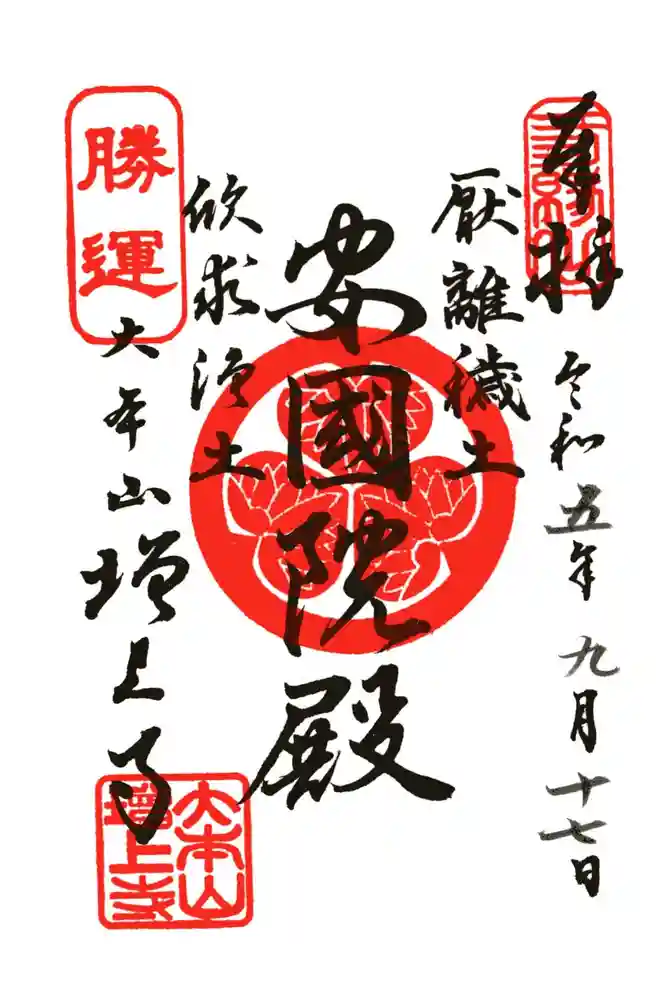 奉拝
令和五年九月十七日
厭離穢土
安國院殿
欣求浄土
勝運
大本山増上寺
大本山
増上寺